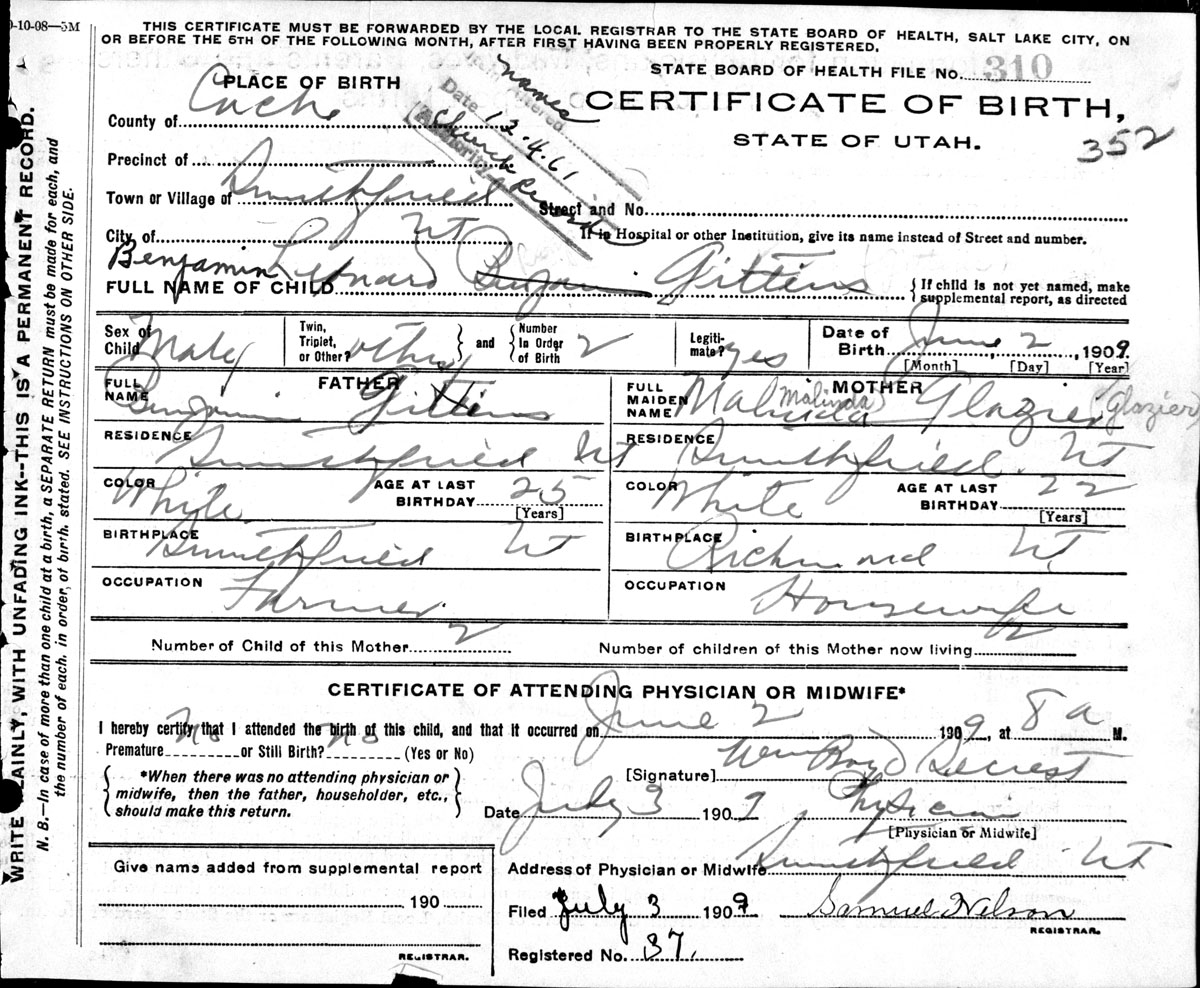 9-10-08—5M
THIS CERTIFICATE MUST BE FORWARDED BY THE LOCAL REGISTRAR TO THE STATE BOARD OF HEALTH, SALT LAKE CITY, ON
OR BEFORE THE 5TH OF THE FOLLOWING MONTH, AFTER FIRST HAVING BEEN PROPERLY REGISTERED.
STATE BOARD OF HEALTH FILE No. 310
PLACE OF BIRTH
CERTIFICATE OF BIRTH,
STATE OF UTAH.
352
names
Date 12.4.61
Authority Church Records
County of Cache
Precinct of
Town or Village of Smithfield
Street and No.
City of Ut
If in Hospital or other Institution, give its name instead of Street and number.
FULL NAME OF CHILD Benjamin Leonard Benjamin Gittens
If child is not yet named, make supplemental report, as directed
Sex of Child Male
Twin, Triplet, or Other? other
and Number In Order of Birth 2
Legitimate? yes
Date of Birth June 2, 1909
[Month] [Day] [Year]
FATHER
FULL NAME Benjamin Gittens
RESIDENCE Smithfield Ut
COLOR White
AGE AT LAST BIRTHDAY 25 [Years]
BIRTHPLACE Smithfield Ut
OCCUPATION Farmer
MOTHER
FULL MAIDEN NAME Malinda Malinda Glazier (Glazier)
RESIDENCE Smithfield. Ut
COLOR White
AGE AT LAST BIRTHDAY 22 [Years]
BIRTHPLACE Richmond Ut
OCCUPATION Housewife
Number of Child of this Mother 2
Number of children of this Mother now living 2
CERTIFICATE OF ATTENDING PHYSICIAN OR MIDWIFE*
I hereby certify that I attended the birth of this child, and that it occurred on June 2 1909, at 8 a M.
Premature No or Still Birth? No (Yes or No)
*When there was no attending physician or
midwife, then the father, householder, etc.,
should make this return.
[Signature] Wm Boyd Secrest
Date July 3 1909 Physician
[Physician or Midwife]
Address of Physician or Midwife Smithfield Ut
Give name added from supplemental report
190
REGISTRAR.
Filed July 3 1909 Samuel Nelson
REGISTRAR.
Registered No. 37.
WRITE PLAINLY, WITH UNFADING INK--THIS IS A PERMANENT RECORD.
N. B.—In case of more than one child at a birth, a SEPARATE RETURN must be made for each, and
the number of each. in order, of birth. stated. SEE INSTRUCTIONS ON OTHER SIDE.